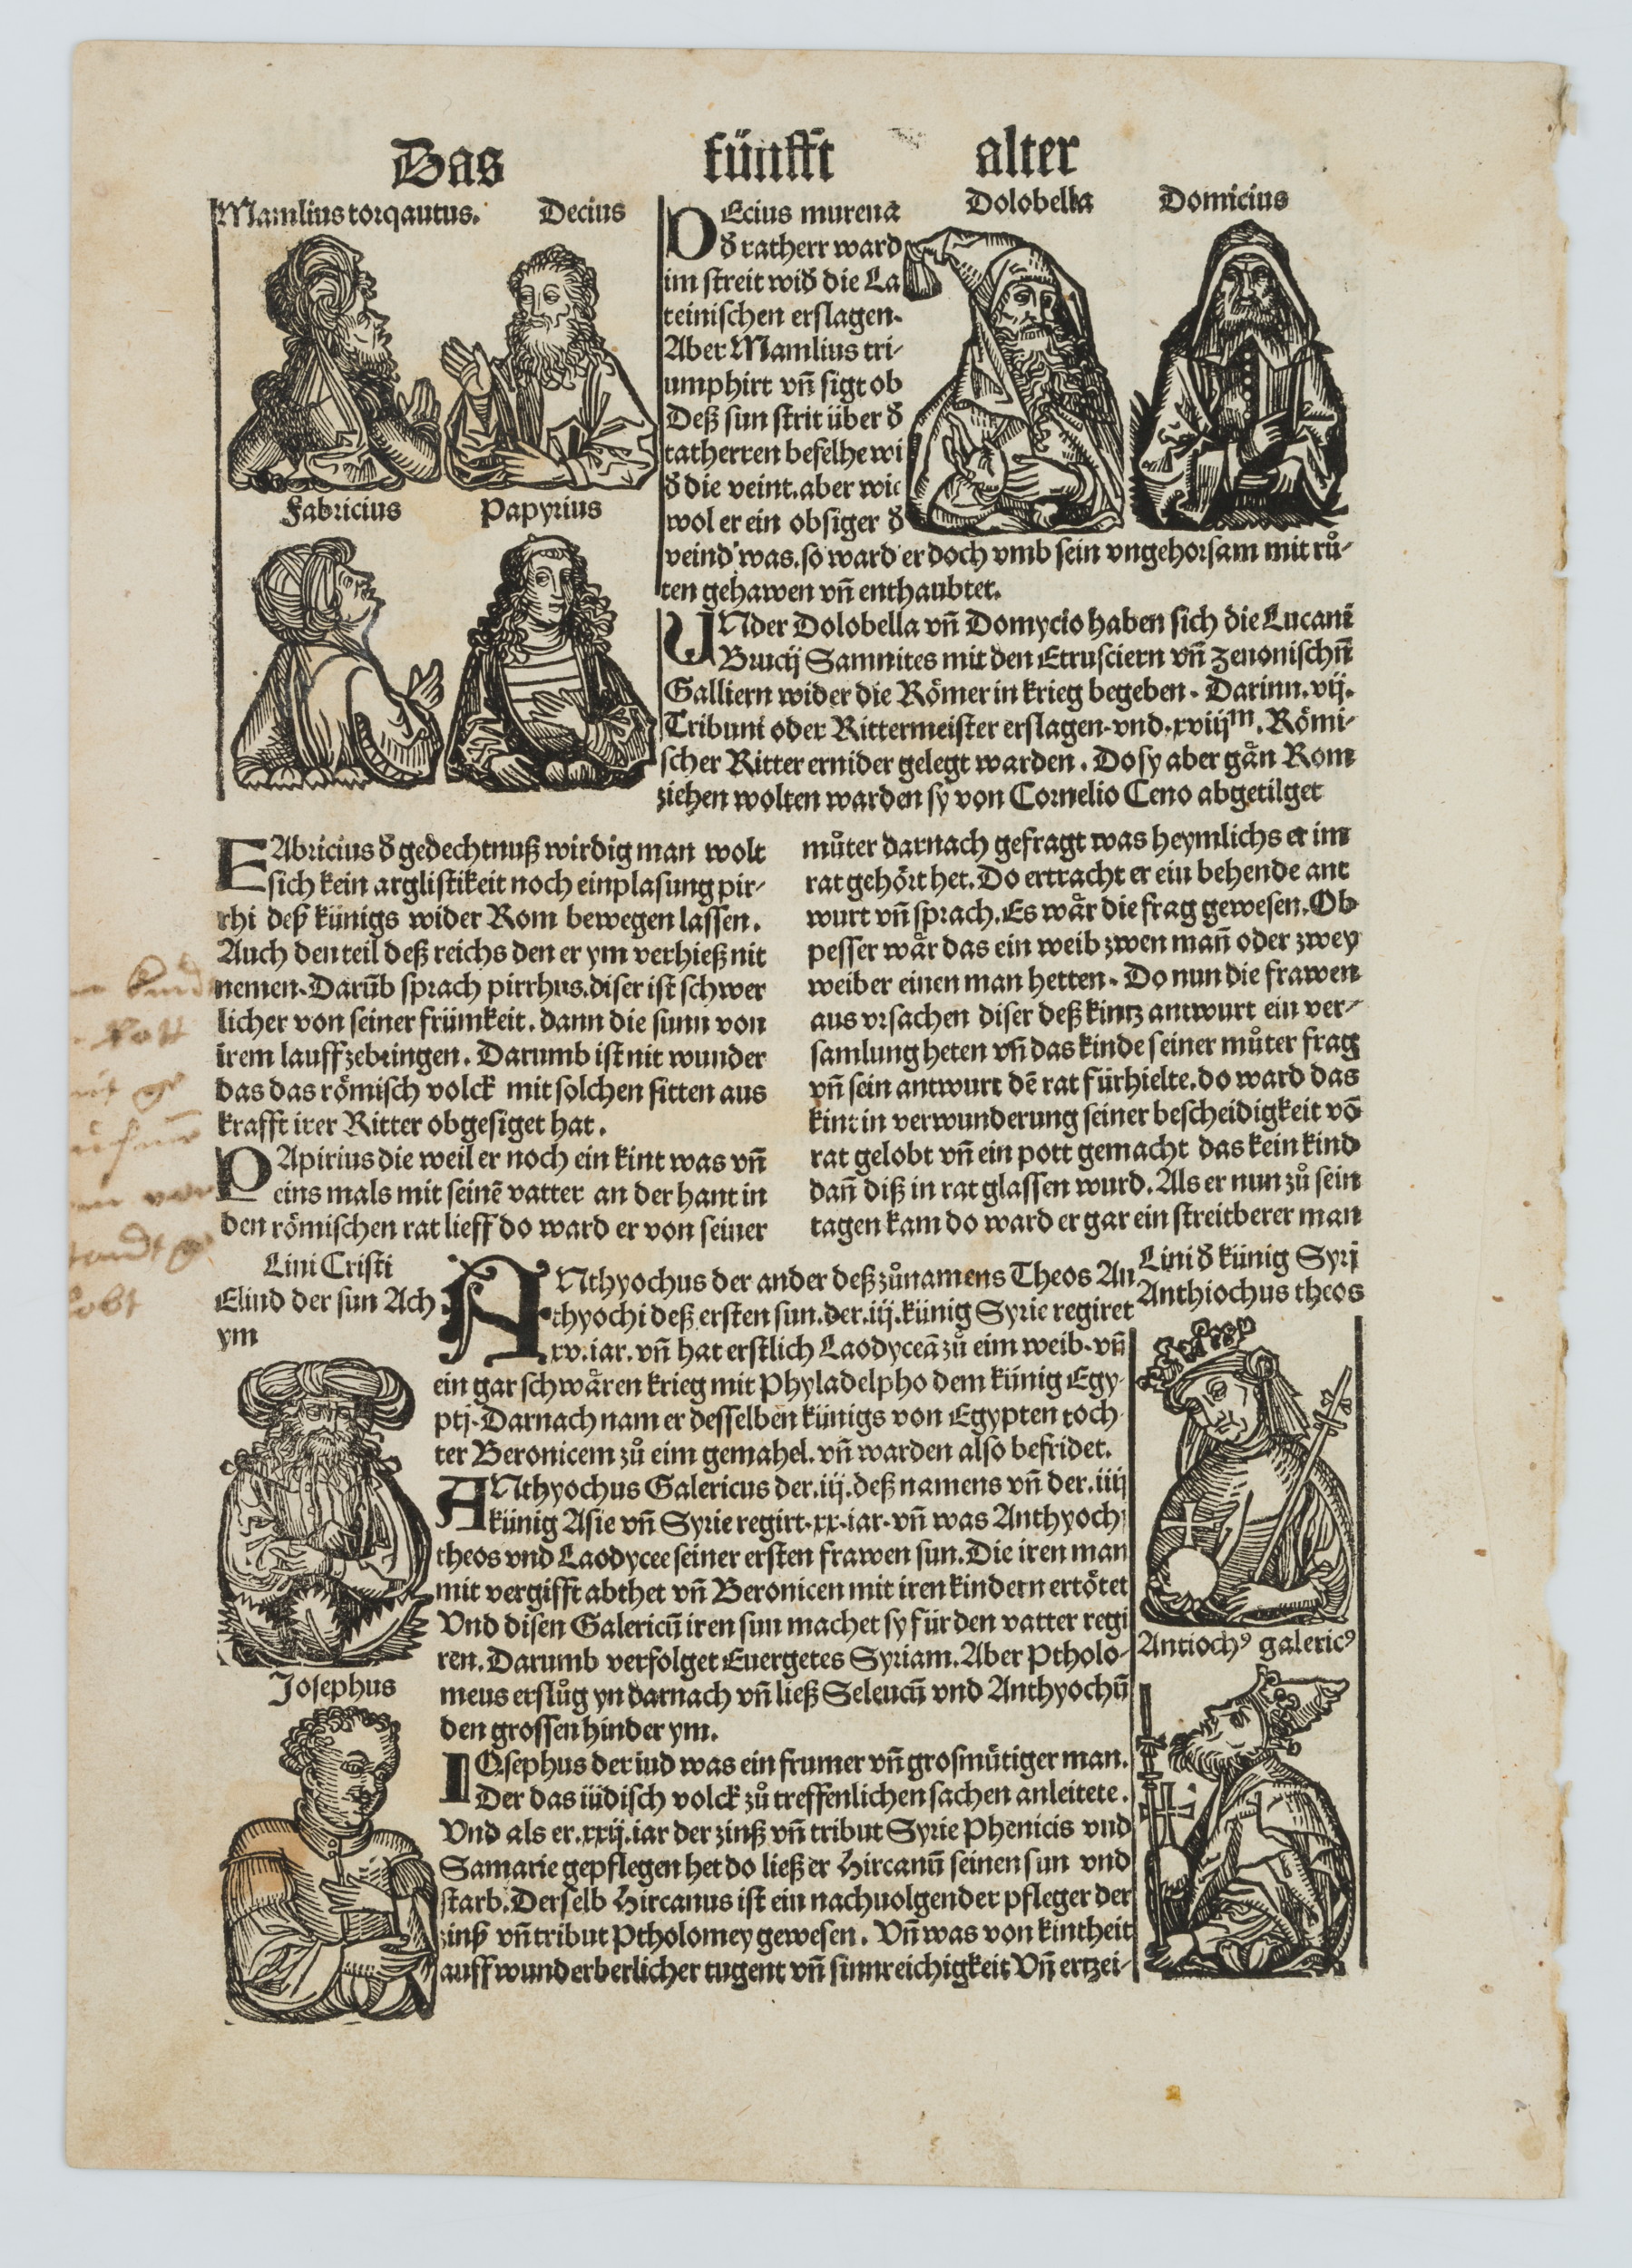 Das fünfft alter
Mamlius torqautus. Decius
Fabricius Papyrius
DEcius murena
ð ratherr ward
im streit wið die La
teinischen erslagen.
Aber Mamlius tri-
umphirt vñ sigt ob
Deß sun strit über ð
ratherren befelhe wi
ð die veint. aber wie
wol er ein obsiger ð
veind was. so ward er doch vmb sein vngehorsam mit ruͦ-
ten gehawen vñ enthaubtet.
Dolobella Domicius
UNder Dolobella vñ Domycio haben sich die Lucani
Brucij Samnites mit den Etrusciern vñ zenonischñ
Galliern wider die Römer in krieg begeben. Darinn. vij.
Tribuni oder Rittermeister erslagen. vnd. xviijᵐ. Römi-
scher Ritter ernider gelegt warden. Do sy aber gån Rom
ziehen wolten warden sy von Cornelio Ceno abgetilget
FAbricius ð gedechtnuß wirdig man wolt
sich kein arglistikeit noch einplasung pir-
rhi deß künigs wider Rom bewegen lassen.
Auch den teil deß reichs den er ym verhieß nit
nemen. Darūb sprach pirrhus. diser ist schwer
licher von seiner frümkeit. dann die sunn von
irem lauff zebringen. Darumb ist nit wunder
das das römisch volck mit solchen sitten aus
krafft irer Ritter obgesiget hat.
PApirius die weil er noch ein kint was vñ
eins mals mit seinē vatter an der hant in
den römischen rat lieff do ward er von seiner
muͦter darnach gefragt was heymlichs er im
rat gehört het. Do ertracht er ein behende ant
wurt vñ sprach. Es wår die frag gewesen. Ob
pesser wår das ein weib zwen mañ oder zwey
weiber einen man hetten. Do nun die frawen
aus vrsachen diser deß kintz antwurt ein ver-
samlung heten vñ das kinde seiner muͦter frag
vñ sein antwurt dē rat fürhielte. do ward das
kint in verwunderung seiner bescheidigkeit vō
rat gelobt vñ ein pott gemacht das kein kind
dañ diß in rat glassen wurd. Als er nun zuͦ sein
tagen kam do ward er gar ein streitberer man
Lini Cristi
Eliud der sun Ach
ym
Josephus
ANthyochus der ander deß zuͦnamens Theos An
thyochi deß ersten sun. der. iij. künig Syrie regiret
xv. iar. vñ hat erstlich Laodyceā zuͦ eim weib. vñ
ein gar schwåren krieg mit Phyladelpho dem künig Egy-
ptj. Darnach nam er desselben künigs von Egypten toch-
ter Beronicem zuͦ eim gemahel. vñ warden also befridet.
ANthyochus Galericus der. iij. deß namens vñ der. iiij
künig Asie vñ Syrie regirt. xx. iar. vñ was Anthyochi
theos vnd Laodycee seiner ersten frawen sun. Die iren man
mit vergifft abthet vñ Beronicen mit iren kindern ertötet
Vnd disen Galericū iren sun machet sy für den vatter regi
ren. Darumb verfolget Euergetes Syriam. Aber Ptholo-
meus ersluͦg yn darnach vñ ließ Seleucū vnd Anthyochū
den grossen hinder ym.
IOsephus der iud was ein frumer vñ grosmütiger man.
Der das iüdisch volck zuͦ treffenlichen sachen anleitete.
Vnd als er. xxij. iar der zinß vñ tribut Syrie Phenicis vnd
Samarie gepflegen het do ließ er Hircanū seinen sun vnd
starb. Derselb Hircanus ist ein nachuolgender pfleger der
zinß vñ tribut Ptholomey gewesen. Vñ was von kintheit
auff wunderberlicher tugent vñ sinnreichigkeit Vñ ertzei-
Lini ð künig Syrj
Anthiochus theos
Antiochꝰ galericꝰ